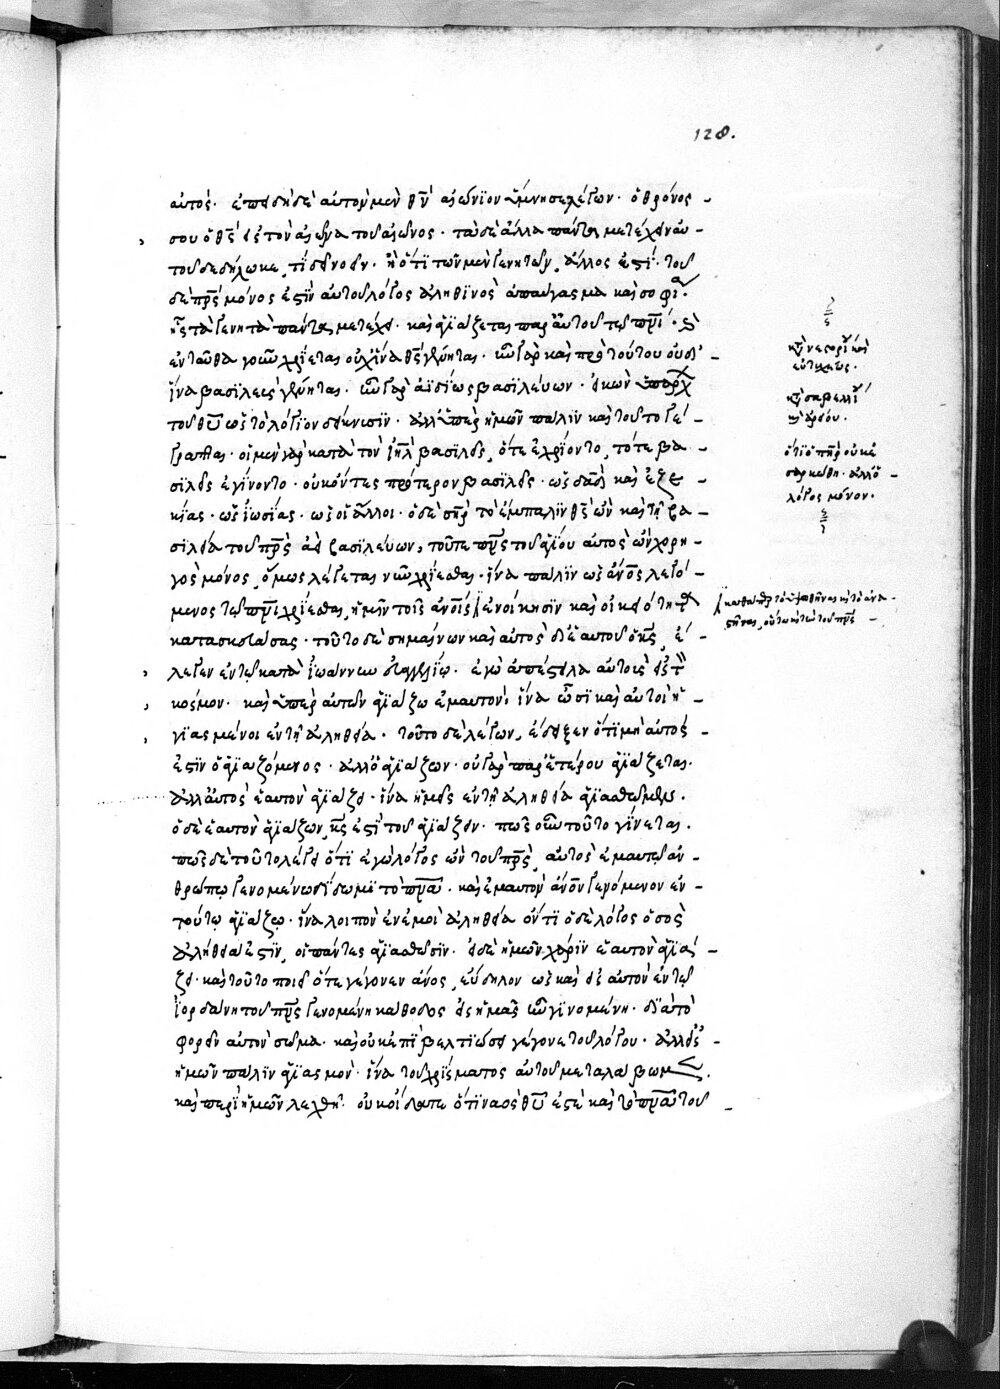 αὐτός. ἐπειδὴ δὲ αὐτὸν μὲν θν̄ αἰώνϊον ὕμνησε λέγων· ὁ θρόνος
σου ὁ θς̄ εἰς τὸν αἰῶνα τοῦ αἰῶνος· τὰ δὲ ἄλλα πάντα μετέχειν αὐ
τοῦ δεδήλωκε, τί δεῖ νοεῖν· ἢ ὅτι τῶν μὲν γενητῶν, ἄλλος ἐστί· τοῦ
δὲ πρς̄ μόνος ἐστὶν αὐτοῦ λόγος ἀληθινὸς ἀπαύγασμα καὶ σοφία.
ἧς τὰ γενητὰ πάντα μετέχει· καὶ ἁγιάζεται παρ αὐτοῦ τῷ πνῑ·
ἐνταῦθα γοῦν χρίεται οὐχ ἵνα θς̄ γένηται· ἦν γὰρ καὶ πρὸ τούτου οὐδ'
ἵνα βασιλεὺς γένηται. ἦν γὰρ ἀϊδίως βασιλεύων· εἰκὼν ὑπάρχ
τοῦ θῡ ὡς τὸ λόγιον δείκνυσιν· ἀλλ ὑπὲρ ἡμῶν πάλιν καὶ τοῦτο γέ
γραπται. οἱ μὲν γὰρ κατὰ τὸν ιηλ̄ βασιλεῖς, ὅτε ἐχρίοντο, τότε βα
σϊλεῖς ἐγίνοντο· οὐκ ὄντες πρότερον βασϊλεῖς· ὡς δαδ̄ καὶ ἐζε
κίας· ὡς ἰωσίας· ὡς οἱ ἄλλοι· ὁ δὲ σηρ̄ τὸ ἔμπαλϊν θς̄ ὢν καὶ τὴν βα
σϊλείαν τοῦ πρς̄ ἀεὶ βασϊλεύων, τοῦ τε πνς̄ τοῦ ἁγίου αὐτὸς ὢν χορη
γὸς μόνος, ὅμως λέγεται νῦν χρίεσθαι· ἵνα πάλϊν ὡς ἀνος̄ λεγό
μενος τῷ πνῑ χρίεσθαι, ἡμῖν τοῖς ἀνοις̄ ἐνοίκησϊν καὶ οἰκειότητα
κατασκευάσας· τοῦτο δὲ σημαίνων καὶ αὐτὸς δι ἑαυτοῦ ὁ κς̄, ἔ
λεγεν ἐν τῷ κατὰ ἰωάννην εὐαγγελίῳ· ἐγὼ ἀπέστειλα αὐτοὺς εἰς τὸν
κόσμον· καὶ ὑπὲρ αὐτῶν ἁγιάζω ἐμαυτόν, ἵνα ὦσϊ καὶ αὐτοὶ ἡ
γϊασμένοι ἐν τῇ ἀληθείᾳ. τοῦτο δὲ λέγων, ἔδειξεν ὅτι μὴ αὐτός
ἐστϊν ὁ ἁγϊαζόμενος· ἀλλ ὁ ἁγιάζων· οὐ γὰρ παρ ἑτέρου ἁγιάζεται·
ἀλλ αὐτὸς ἑαυτὸν ἁγιάζει· ἵνα ἡμεῖς ἐν τῇ ἀληθείᾳ ἁγιασθῶμεν.
ὁ δὲ ἑαυτὸν ἁγιάζων, κς̄ ἐστὶ τοῦ ἁγιάζειν· πῶς οὖν τοῦτο γίνεται.
πῶς δὲ τοῦτο λέγει ὅτϊ ἐγὼ λόγος ὢν τοῦ πρς̄, αὐτὸς ἐμαυτῷ ἀν
θρώπῳ γενομένῳ δίδωμϊ τὸ πνᾱ· καὶ ἐμαυτὸν ἀνον̄ γενόμενον ἐν
τούτῳ ἁγιάζω· ἵνα λοιπὸν ἐν ἐμοὶ ἀληθείᾳ ὄντι ὁ δὲ λόγος ὁ σὸς
ἀλήθειά ἐστϊν, οἱ πάντες ἁγιασθῶσϊν. εἰ δὲ ἡμῶν χάρϊν ἑαυτὸν ἁγιά
ζει· καὶ τοῦτο ποιεῖ ὅτε γέγονεν ἀνος̄, εὔδηλον ὡς καὶ εἰς αὐτὸν ἐν τῷ
ἰορδάνῃ τοῦ πνς̄ γενομένη κάθοδος εἰς ἡμᾶς ἦν γϊνομένη· δϊὰ τὸ
φορεῖν αὐτὸν σῶμα· καὶ οὐκ ἐπὶ βελτϊώσει γέγονε τοῦ λόγου· ἀλλ εἰς
ἡμῶν πάλιν ἁγϊασμόν· ἵνα τοῦ χρίσματος αὐτοῦ μεταλάβωμεν.
καὶ περὶ ἡμῶν λεχθῇ· οὐκ οἴδατε ὅτϊ ναὸς θῡ ἐστὲ καὶ τὸ πνᾱ τοῦ
128.
κτ νεστορίου καὶ
εὐτυχέως.
κτ σαβελλίου
κτ ἀρείου.
ὅτϊ ὁ πηρ̄ οὐκ ἐ
σαρκώθη· ἀλλ ὁ
λόγος μόνον.